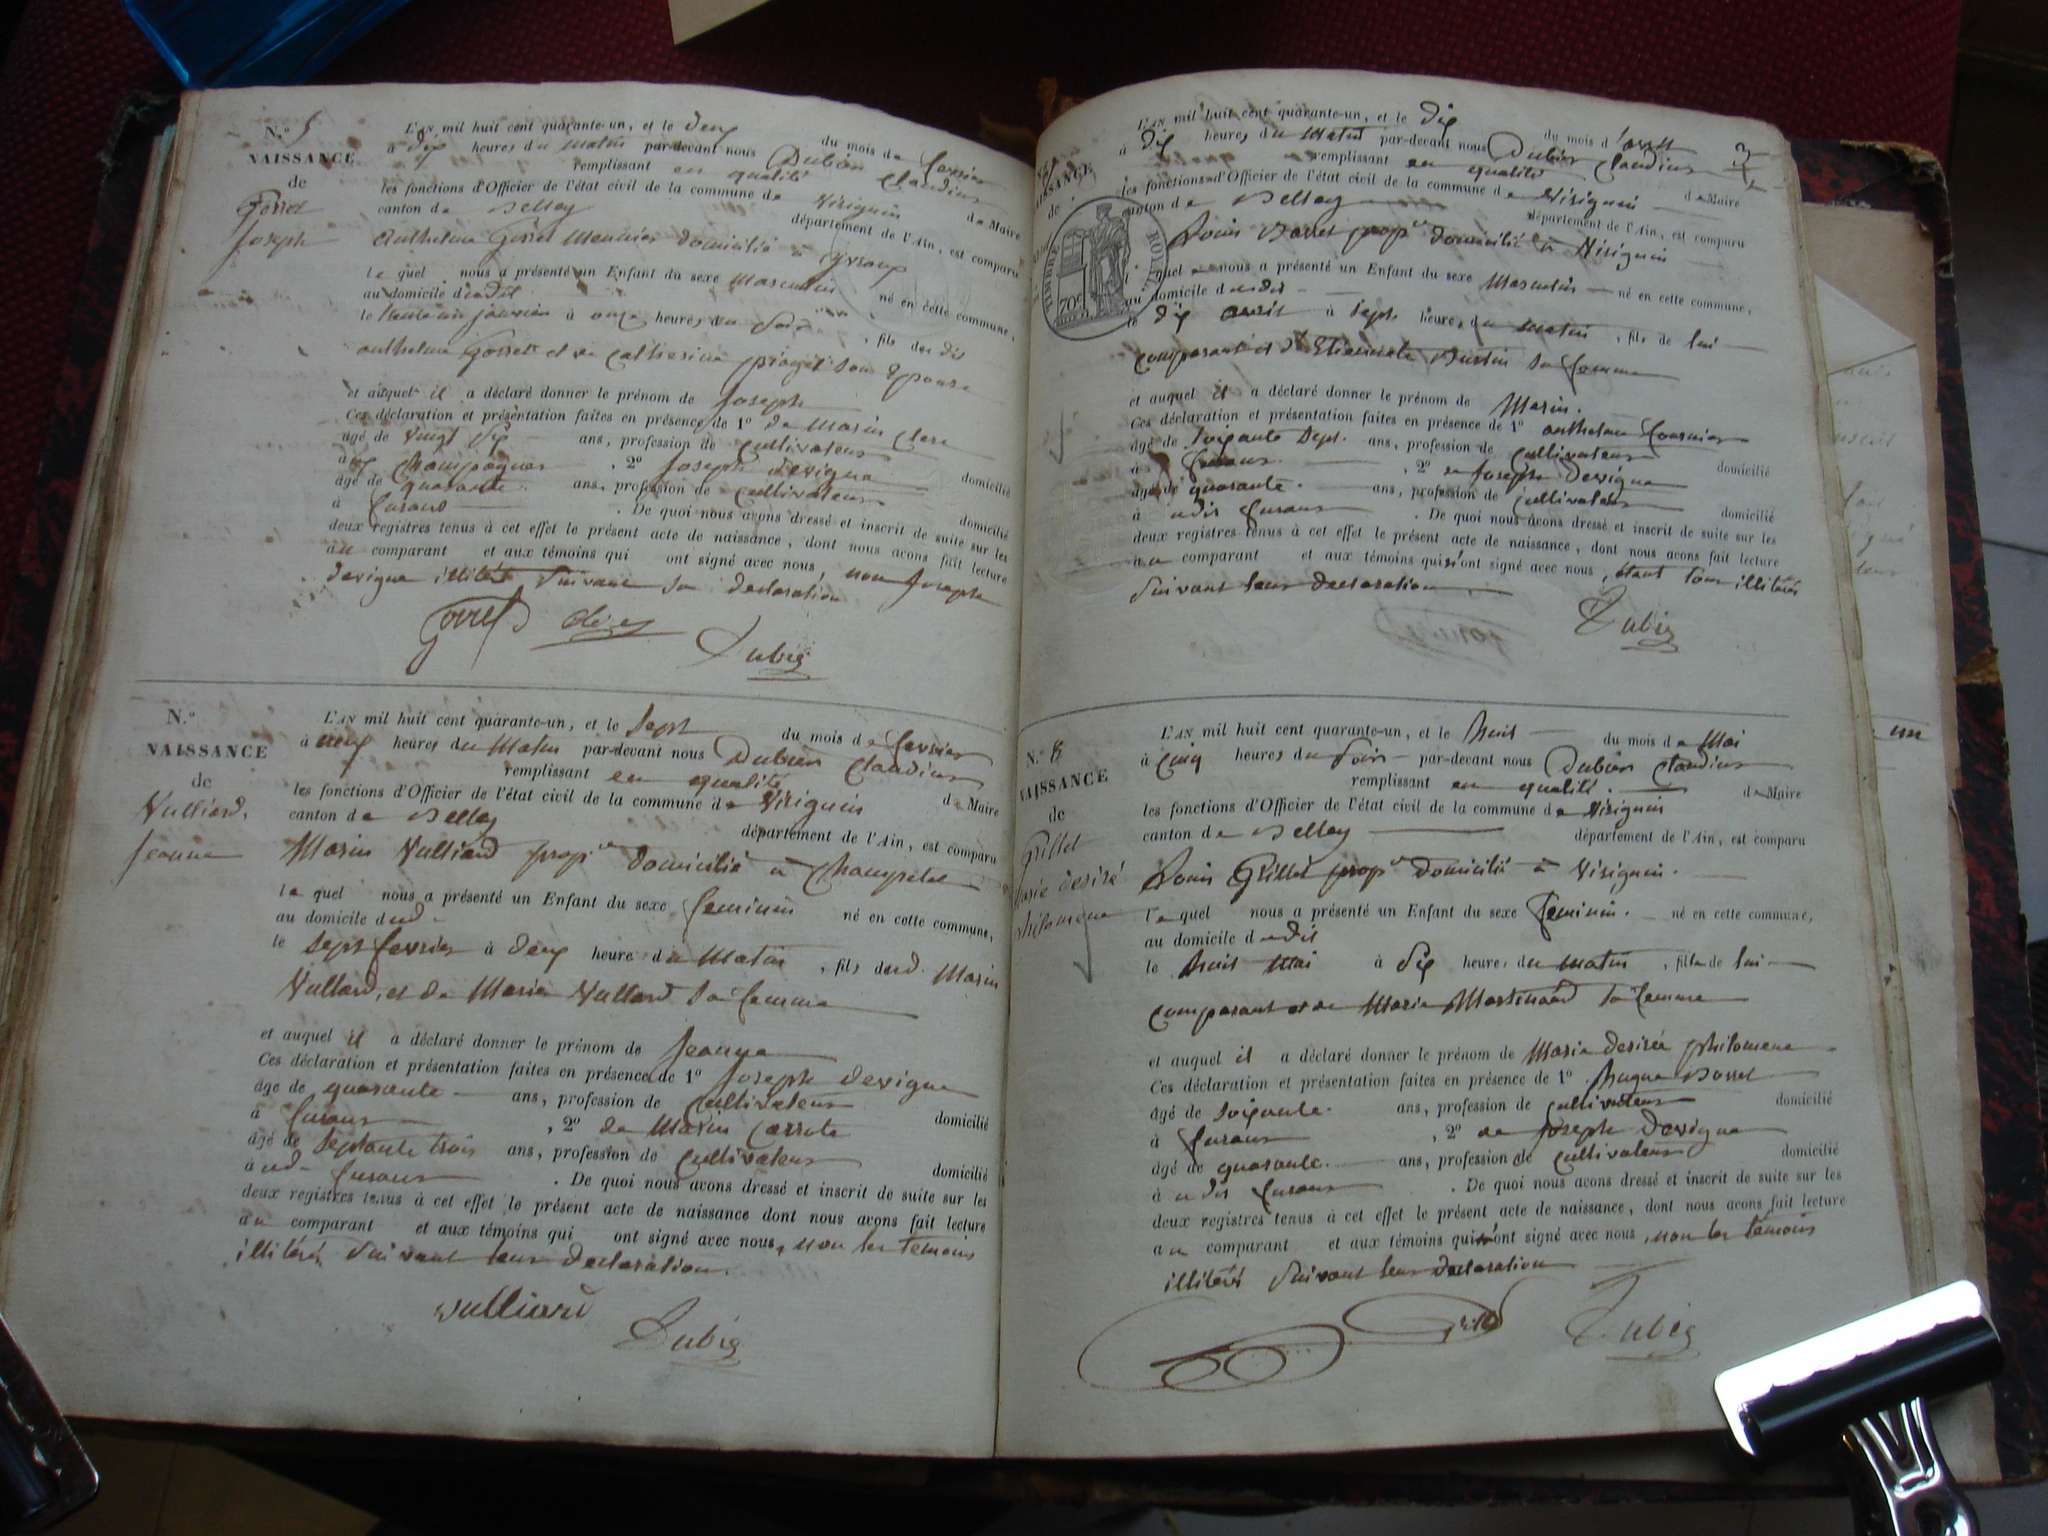 N.º 5
NAISSANCE
de
Gorret
Joseph
L'AN mil huit cent quarante-un, et le deux du mois de février
à dix heures du matin par-devant nous Dubier Claudius
remplissant en qualité de Maire
les fonctions d'Officier de l'état civil de la commune de Virignin
canton de Belley département de l'Ain, est comparu
Anthelme Gorret Meunier domicilié à
le quel nous a présenté un Enfant du sexe Masculin né en cette commune,
au domicile dudit
le trente un janvier à onze heures du soir, fils des dis
anthelme Gorret et de Catherine son Epouse
et auquel il a déclaré donner le prénom de Joseph
Ces déclaration et présentation faites en présence de 1º de Marin Clerc
âgé de vingt six ans, profession de Cultivateur domicilié
à Champagnes, 2º Joseph devigne
âgé de quarante ans, profession de Cultivateur domicilié
à Curans. De quoi nous avons dressé et inscrit de suite sur les
deux registres tenus à cet effet le présent acte de naissance, dont nous avons fait lecture
au comparant et aux témoins qui ont signé avec nous, non Joseph
devigne illitéré suivant sa declaration
Gorret Dubier
N.º
NAISSANCE
de
Vulliard,
Jeanne
L'AN mil huit cent quarante-un, et le sept du mois de fevrier
à neuf heures du Matin par-devant nous Dubier Claudius
remplissant en qualité de Maire
les fonctions d'Officier de l'état civil de la commune de Virignin
canton de Belley département de l'Ain, est comparu
Marin Vulliard prop.re domicilié à
le quel nous a présenté un Enfant du sexe feminin né en cette commune,
au domicile dud.
le sept fevrier à deux heure du Matin, fils dud. Marin
Vullard, et de Marie Vullard sa femme
et auquel il a déclaré donner le prénom de Jeanne
Ces déclaration et présentation faites en présence de 1º Joseph devigne
âgé de quarante ans, profession de Cultivateur domicilié
à Curans, 2º de Marin
âgé de septante trois ans, profession de Cultivateur domicilié
à ud. Curans. De quoi nous avons dressé et inscrit de suite sur les
deux registres tenus à cet effet le présent acte de naissance dont nous avons fait lecture
au comparant et aux témoins qui ont signé avec nous, non les temoins
illitérés suivant leur declaration.
vulliard
Dubier
NAISSANCE
de
TIMBRE ROYAL
70c
L'AN mil huit cent quarante-un, et le dix du mois d'avril
à dix heures du Matin par-devant nous Dubier Claudius
remplissant en qualité de Maire
les fonctions d'Officier de l'état civil de la commune de Virignin
canton de Belley département de l'Ain, est comparu
Louis Borret prop.re domicilié à Virignin
le quel nous a présenté un Enfant du sexe Masculin né en cette commune,
au domicile dudis
le dix avril à sept heures du matin, fils de lui
comparant et d'Etiennete sa femme
et auquel il a déclaré donner le prénom de Marin.
Ces déclaration et présentation faites en présence de 1º anthelme
âgé de soixante sept ans, profession de Cultivateur domicilié
à Curans, 2º de Joseph Devigne
âgé de quarante. ans, profession de Cultivateur domicilié
à udis Curans. De quoi nous avons dressé et inscrit de suite sur les
deux registres tenus à cet effet le présent acte de naissance, dont nous avons fait lecture
au comparant et aux témoins qui n'ont signé avec nous, étant tous illitérés
suivant leur declaration
Dubier
N.º 8
NAISSANCE
de
Grillet
Marie desiré
philomene
L'AN mil huit cent quarante-un, et le huit du mois de Mai
à cinq heures du soir par-devant nous Dubier Claudius
remplissant en qualité. de Maire
les fonctions d'Officier de l'état civil de la commune de Virignin
canton de Belley département de l'Ain, est comparu
Louis Grillet prop.re domicilié à Virignin.
le quel nous a présenté un Enfant du sexe Feminin. né en cette commune,
au domicile dudit
le huit Mai à dix heures du matin, fille de lui
comparant et de Marie sa femme
et auquel il a déclaré donner le prénom de Marie desirée philomene
Ces déclaration et présentation faites en présence de 1º hugue Borret
âgé de soixante. ans, profession de Cultivateur domicilié
à Curans, 2º de Joseph Devigne
âgé de quarante. ans, profession de Cultivateur domicilié
à udis Curans. De quoi nous avons dressé et inscrit de suite sur les
deux registres tenus à cet effet le présent acte de naissance, dont nous avons fait lecture
au comparant et aux témoins qui ont signé avec nous, non les témoins
illitérés suivant leur declaration
Dubier